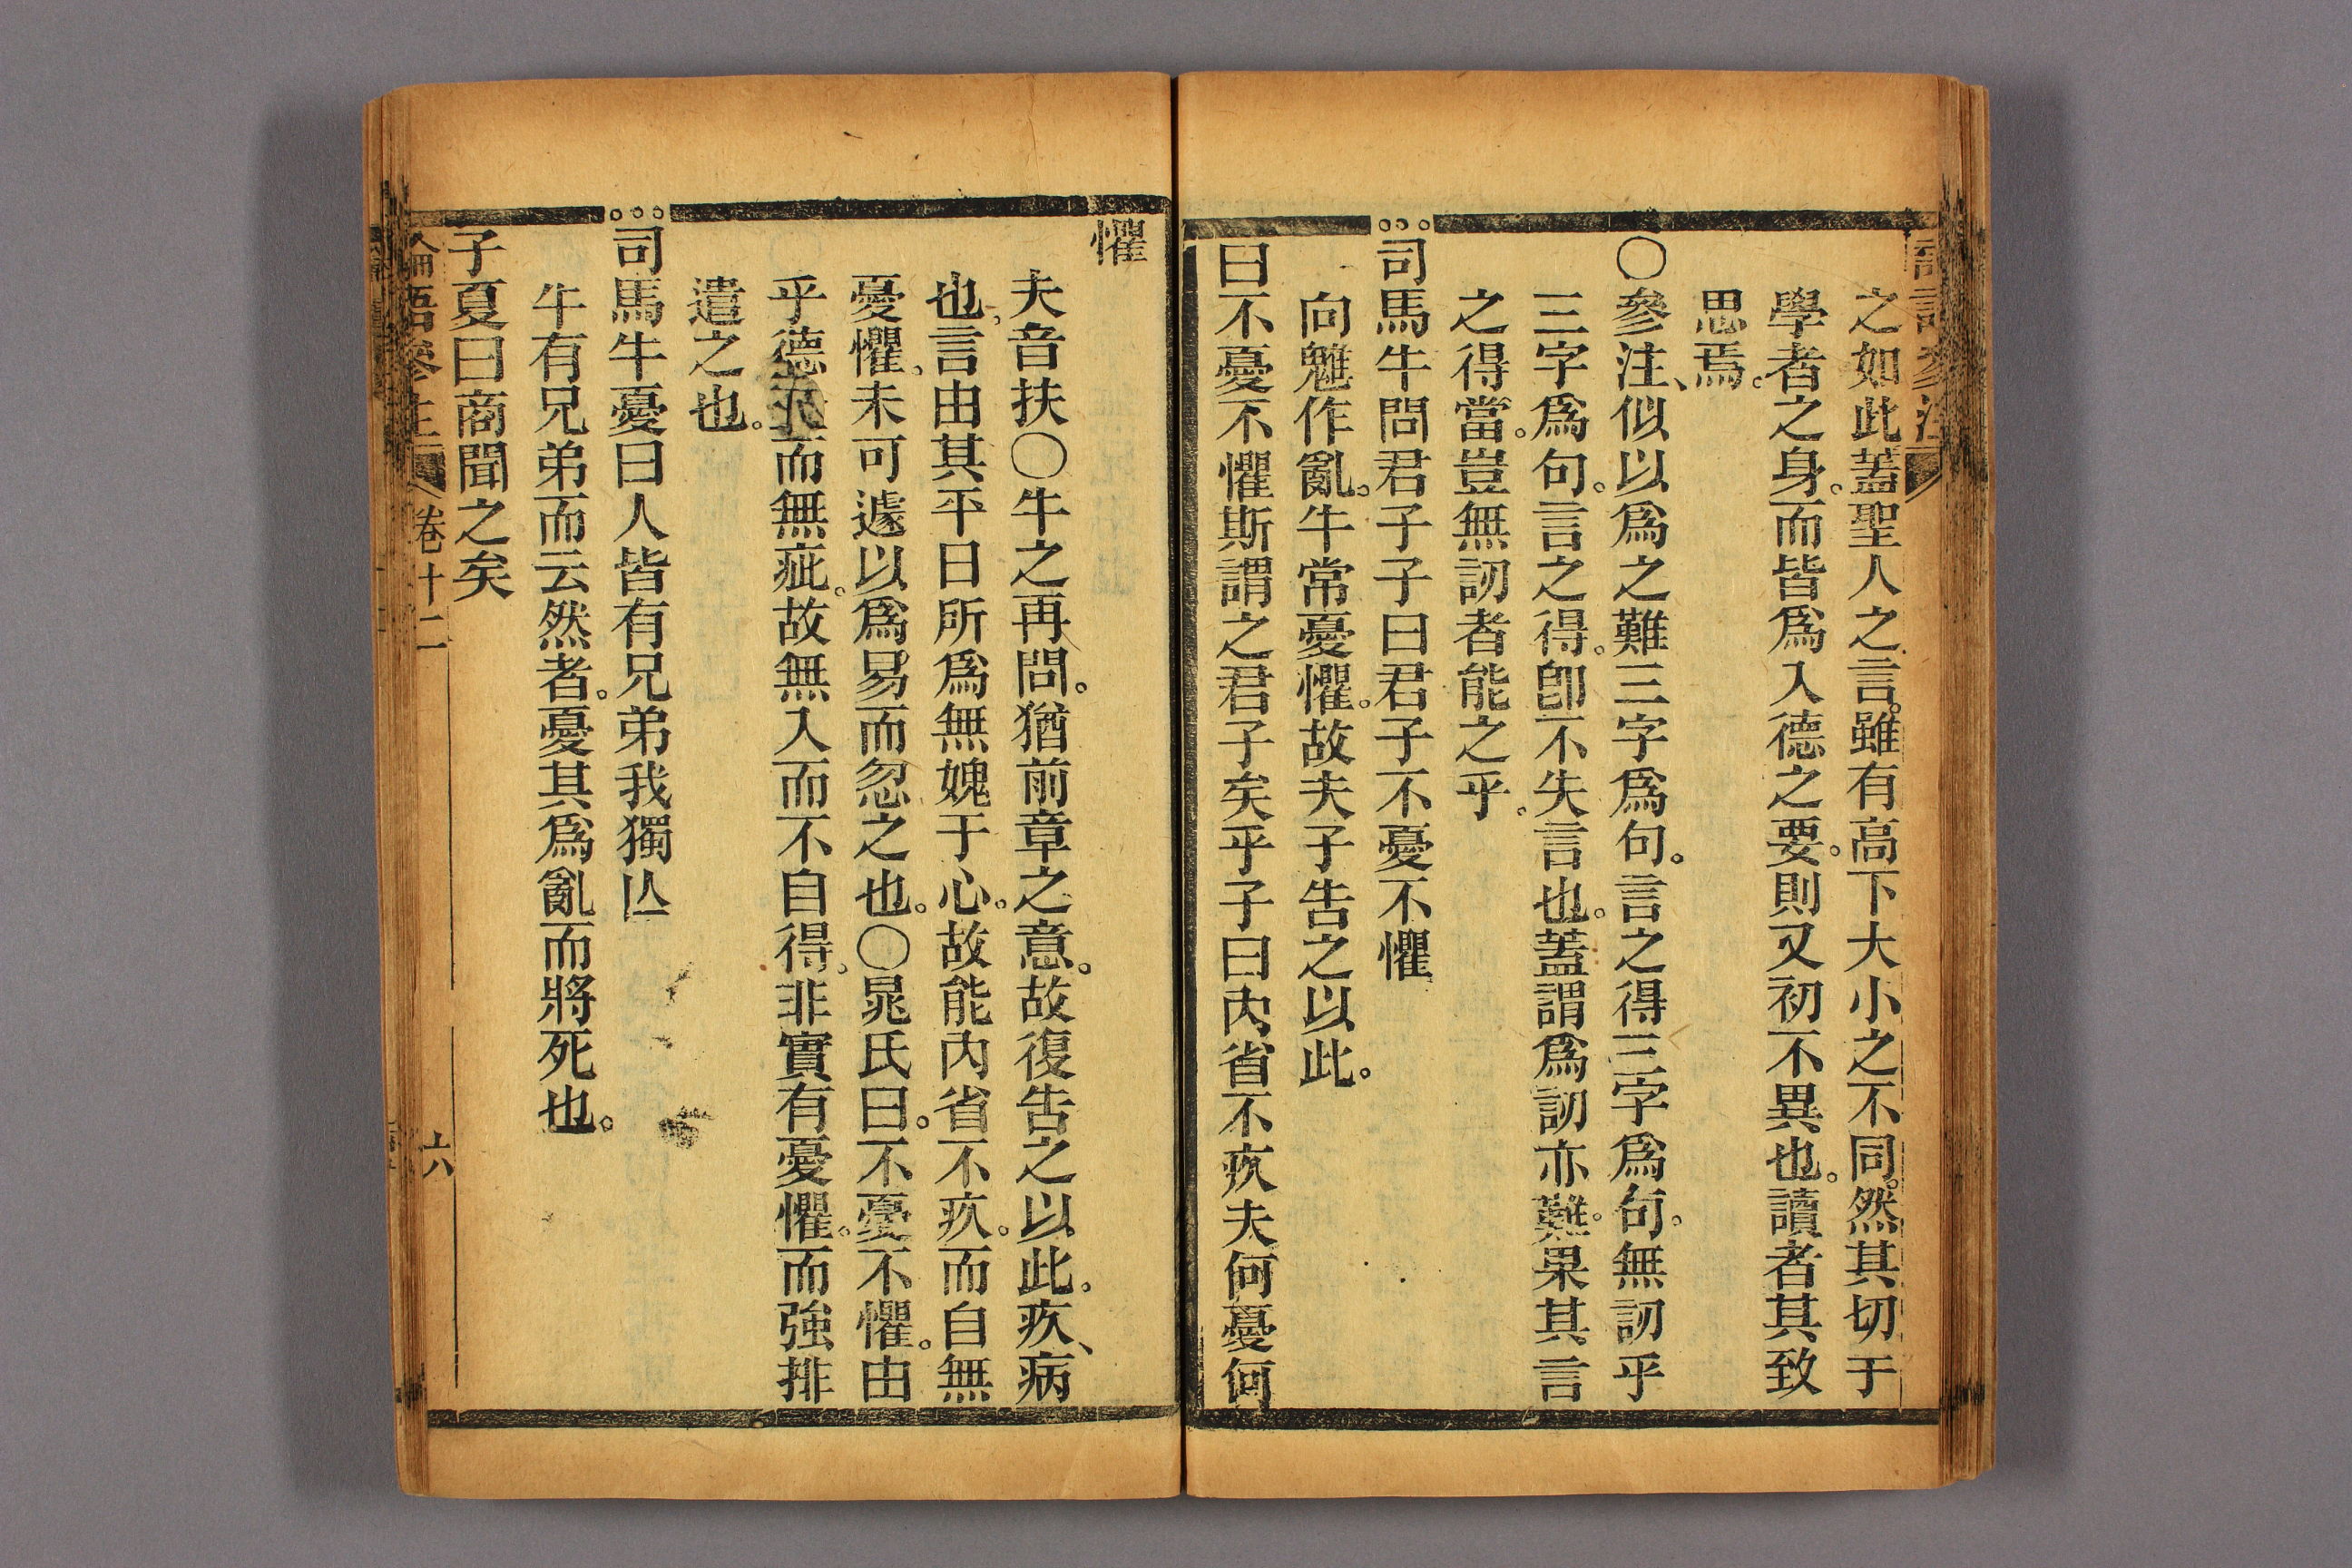 之如此蓋聖人之言。雖有高下大小之不同。然其切于
學者之身。而皆爲入德之要。則又初不異也。讀者其致
思焉。
〇參注、似以爲之難三字爲句。言之得三字爲句。無訒乎
三字爲句。言之得。卽不失言也。蓋謂爲訒亦難。果其言
之得當。豈無訒者能之乎。
司馬牛問君子子曰君子不憂不懼
向魋作亂。牛常憂懼。故夫子告之以此。
曰不憂不懼斯謂之君子矣乎子曰內省不疚夫何憂何
懼
夫音扶〇牛之再問。猶前章之意。故復告之以此。疚、病
也。言由其平日所爲無媿于心。故能內省不疚。而自無
憂懼。未可遽以爲易而忽之也。〇晁氏曰。不憂不懼。由
乎德而無疵。故無入而不自得。非實有憂懼。而強排
遣之也。
司馬牛憂曰人皆有兄弟我獨亾
牛有兄弟而云然者。憂其爲亂而將死也。
子夏曰商聞之矣
論語參注 卷十二 六